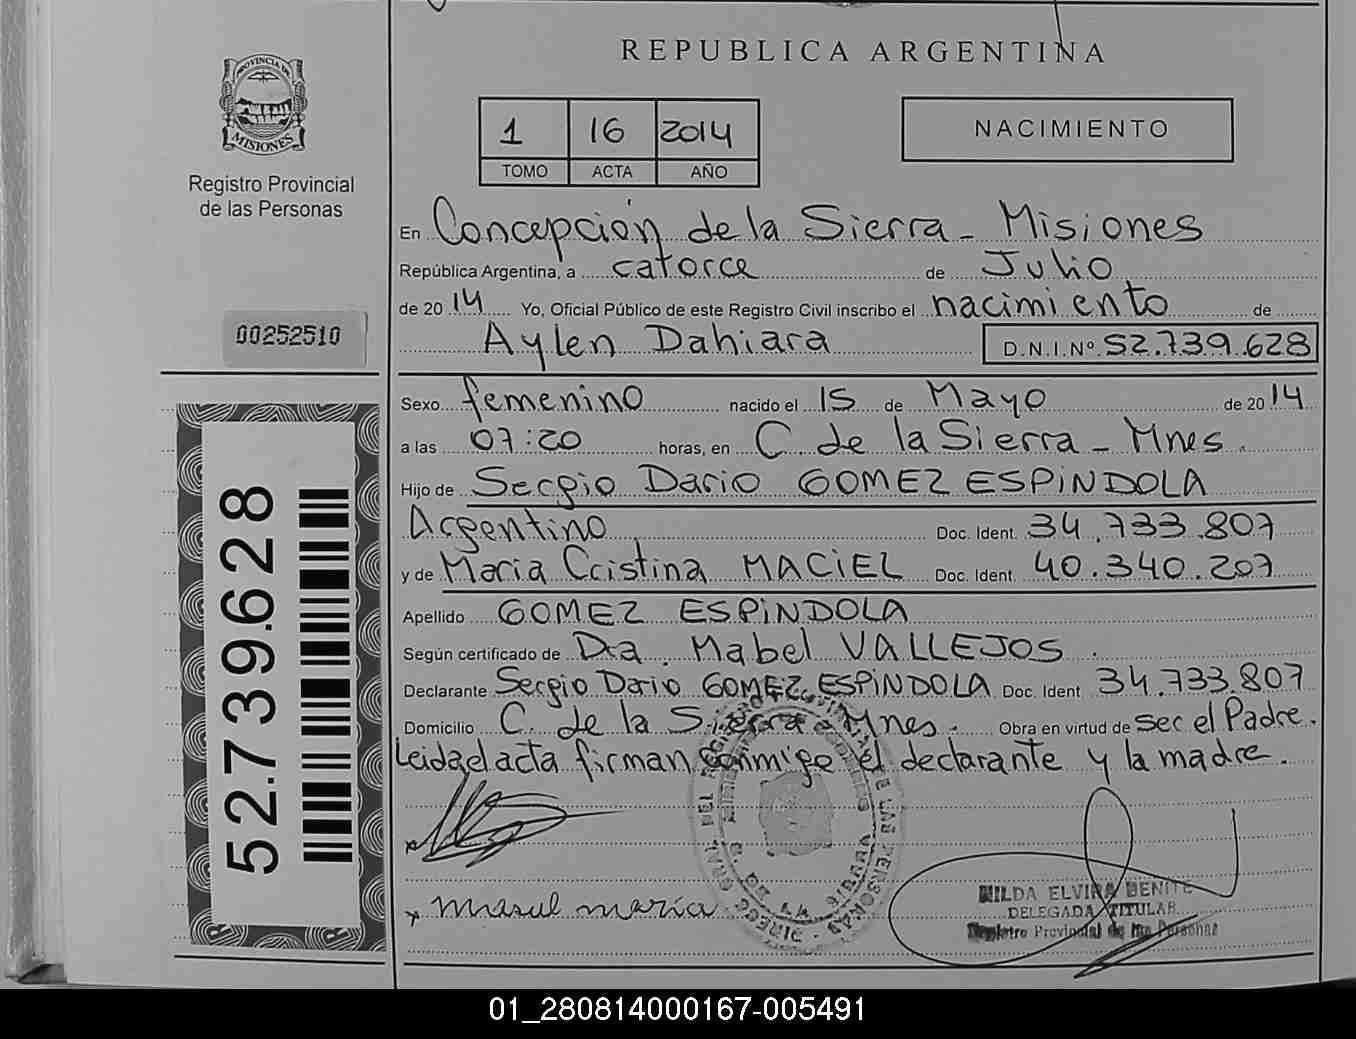 REPUBLICA ARGENTINA
PROVINCIA DE
MISIONES
Registro Provincial
de las Personas
1 16 2014
TOMO ACTA AÑO
NACIMIENTO
En Concepción de la Sierra - Misiones
República Argentina, a catorce de Julio
de 2014 Yo, Oficial Público de este Registro Civil inscribo el nacimiento de
00252510
Aylen Dahiara D.N.I.Nº 52.739.628
Sexo femenino nacido el 15 de Mayo de 2014
a las 07:20 horas, en C. de la Sierra - Mnes.
Hijo de Sergio Dario GOMEZ ESPINDOLA
Argentino Doc. Ident. 34.733.807
y de Maria Cristina MACIEL Doc. Ident. 40.340.207
Apellido GOMEZ ESPINDOLA
Según certificado de Dra. Mabel VALLEJOS.
Declarante Sergio Dario GOMEZ ESPINDOLA Doc. Ident 34.733.807
Domicilio C. de la Sierra - Mnes. Obra en virtud de ser el Padre.
Leida el acta firman conmigo el declarante y la madre.
52.739.628
x
x masul maria
HILDA ELVIRA BENITE
DELEGADA TITULAR
Registro Provincial de las Personas
01_280814000167-005491